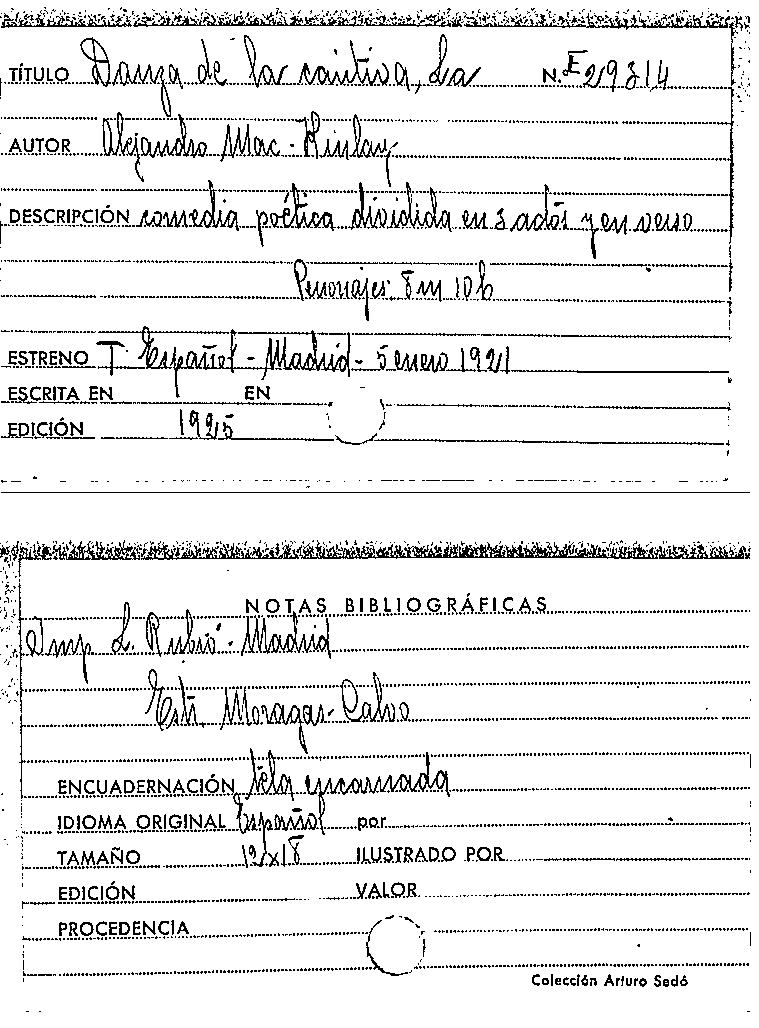 TÍTULO Danza de la cautiva, La N.º E 29314
AUTOR Alejandro Mac-Kinlay
DESCRIPCIÓN comedia poética dividida en 3 actos y en verso
Personajes: 8 m 10 h
ESTRENO T. Español - Madrid - 5 enero 1921
ESCRITA EN EN
EDICIÓN 1925
NOTAS BIBLIOGRÁFICAS
Imp L. Rubio - Madrid
Estr. Moragas-Calvo
ENCUADERNACIÓN tela encarnada
IDIOMA ORIGINAL Español por
TAMAÑO 12x18 ILUSTRADO POR
EDICIÓN VALOR
PROCEDENCIA
Colección Arturo Sedó